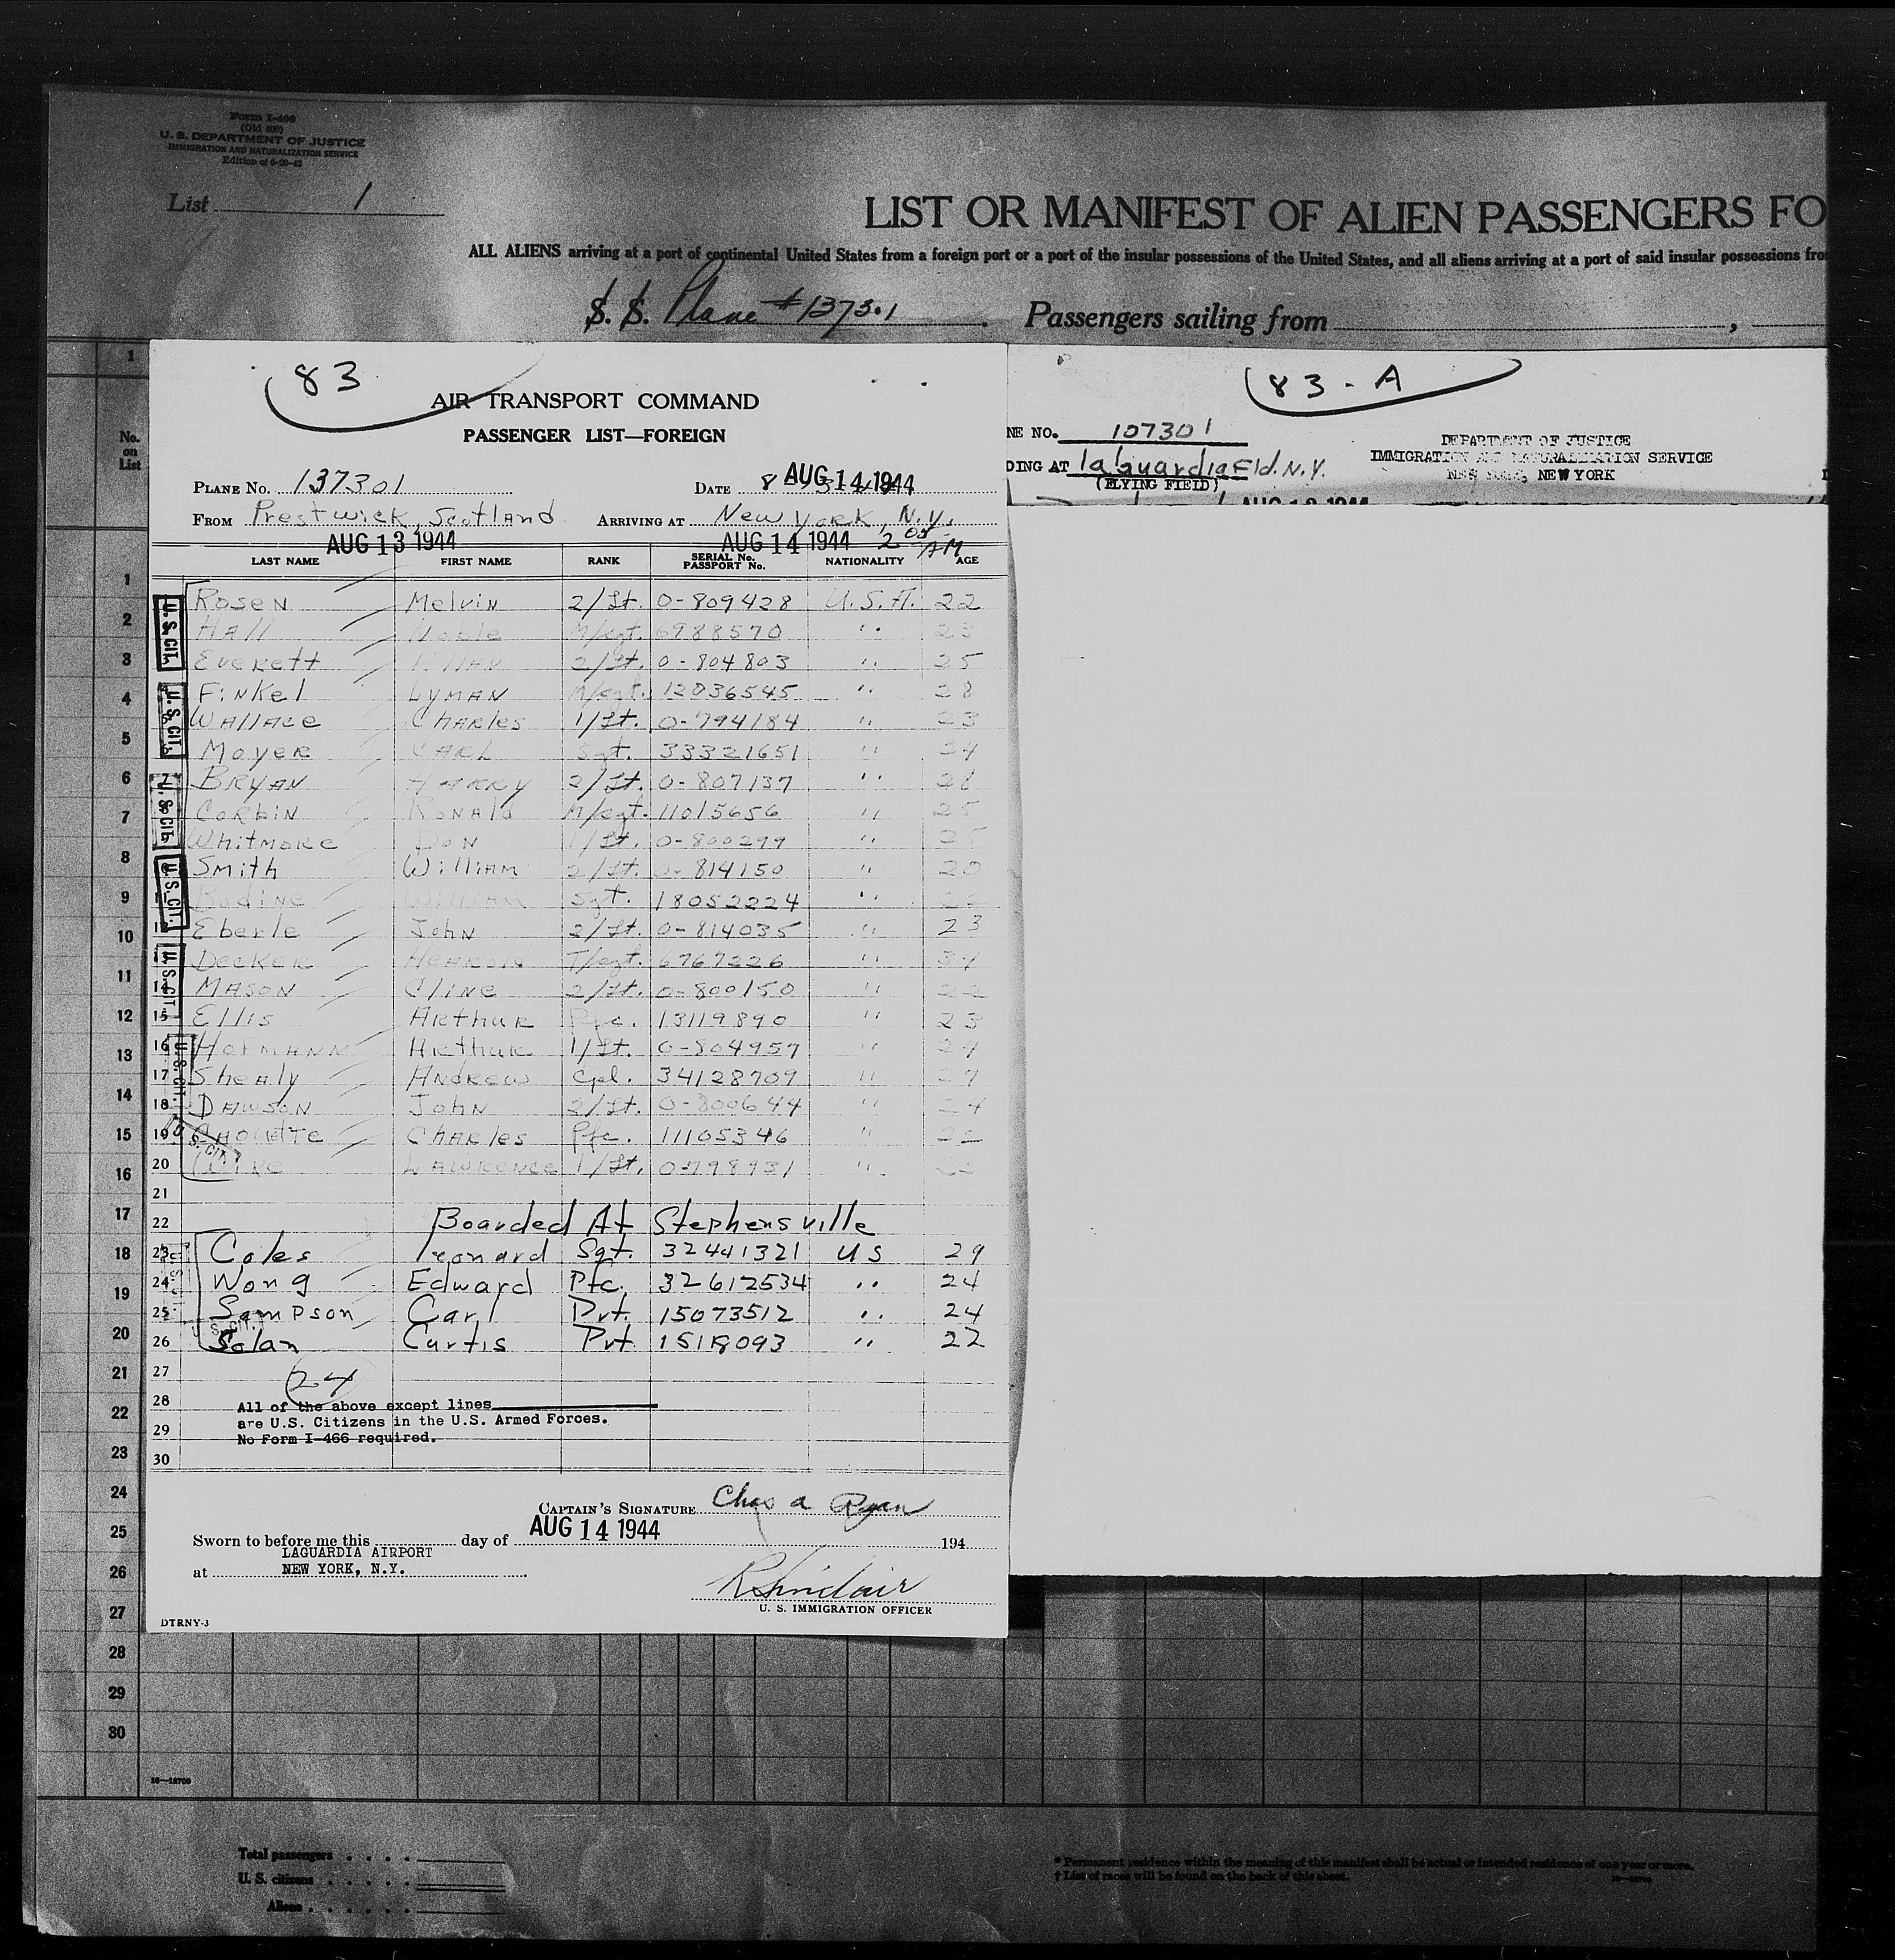 Form I-466
(Old 500)
U. S. DEPARTMENT OF JUSTICE
IMMIGRATION AND NATURALIZATION SERVICE
List 1
LIST OR MANIFEST OF ALIEN PASSENGERS FO
ALL ALIENS arriving at a port of continental United States from a foreign port or a port of the insular possessions of the United States, and all aliens arriving at a port of said insular possessions fro
S. S. Plane #137301. Passengers sailing from ,
83
AIR TRANSPORT COMMAND
PASSENGER LIST—FOREIGN
PLANE No. 137301 DATE 8 AUG 14 1944
FROM Prestwick, Scotland ARRIVING AT New York, N.Y.
AUG 13 1944 AUG 14 1944 2 05 AM
LAST NAME FIRST NAME RANK SERIAL No. PASSPORT No. NATIONALITY AGE
Rosen Melvin 2/Lt. 0-809428 U.S.A. 22
Hall Noble M/sgt. 6988570 "
Everett 2/Lt. 0-804803 " 25
Finkel Lyman M/sgt. 12036545 " 28
Wallace Charles 1/Lt. 0-794184 " 23
Moyer Carl Sgt. 33321651 "
Bryan Harry 2/Lt. 0-807137 " 28
Corbin Ronald M/sgt. 11015656 " 25
Whitmore Don 1/Lt. 0-800299 " 25
Smith William 2/Lt. 0-814150 " 20
Bodine William Sgt. 18052224 " 22
12 Eberle John 2/Lt. 0-814035 " 23
Decker Harold T/sgt. 6767226 " 34
14 Mason Cline 2/Lt. 0-800150 " 22
15 Ellis Arthur Pfc. 13119890 " 23
16 Hofmann Arthur 1/Lt. 0-804957 " 24
17 Shealy Andrew Cpl. 34128709 "
18 Dawson John 2/Lt. 0-800644 " 24
19 Choustte Charles Pfc. 11105346 " 22
20 Lawrence 1/Lt. 0-798931 "
21
22 Boarded At Stephensville
23 Coles Leonard Sgt. 32441321 US 29
24 Wong Edward Pfc. 32612534 " 24
25 Sampson Carl Pvt. 15073512 " 24
26 Solan Curtis Pvt. 15118093 " 22
27 24
28 All of the above except lines
are U.S. Citizens in the U.S. Armed Forces.
29
No Form I-466 required.
30
CAPTAIN'S SIGNATURE Chas a Ryan
Sworn to before me this day of AUG 14 1944 194
LAGUARDIA AIRPORT
at NEW YORK, N.Y.
R Sinclair
U. S. IMMIGRATION OFFICER
DTRNY-3
U. S. CIT.
U. S. CIT.
U. S. CIT.
U. S. CIT.
U. S. CIT.
U. S. CIT.
83-A
NE NO. 107301
DING AT LaGuardia Fld. N.Y.
(FLYING FIELD)
DEPARTMENT OF JUSTICE
IMMIGRATION AND NATURALIZATION SERVICE
NEW YORK, NEW YORK
1
No.
on
List
1
2
3
4
5
6
7
8
9
10
11
12
13
14
15
16
17
18
19
20
21
22
23
24
25
26
27
28
29
30
16—18709
Total passengers
U. S. citizens
Aliens
* Permanent residence within the meaning of this manifest shall be actual or intended residence of one year or more.
† List of races will be found on the back of this sheet.